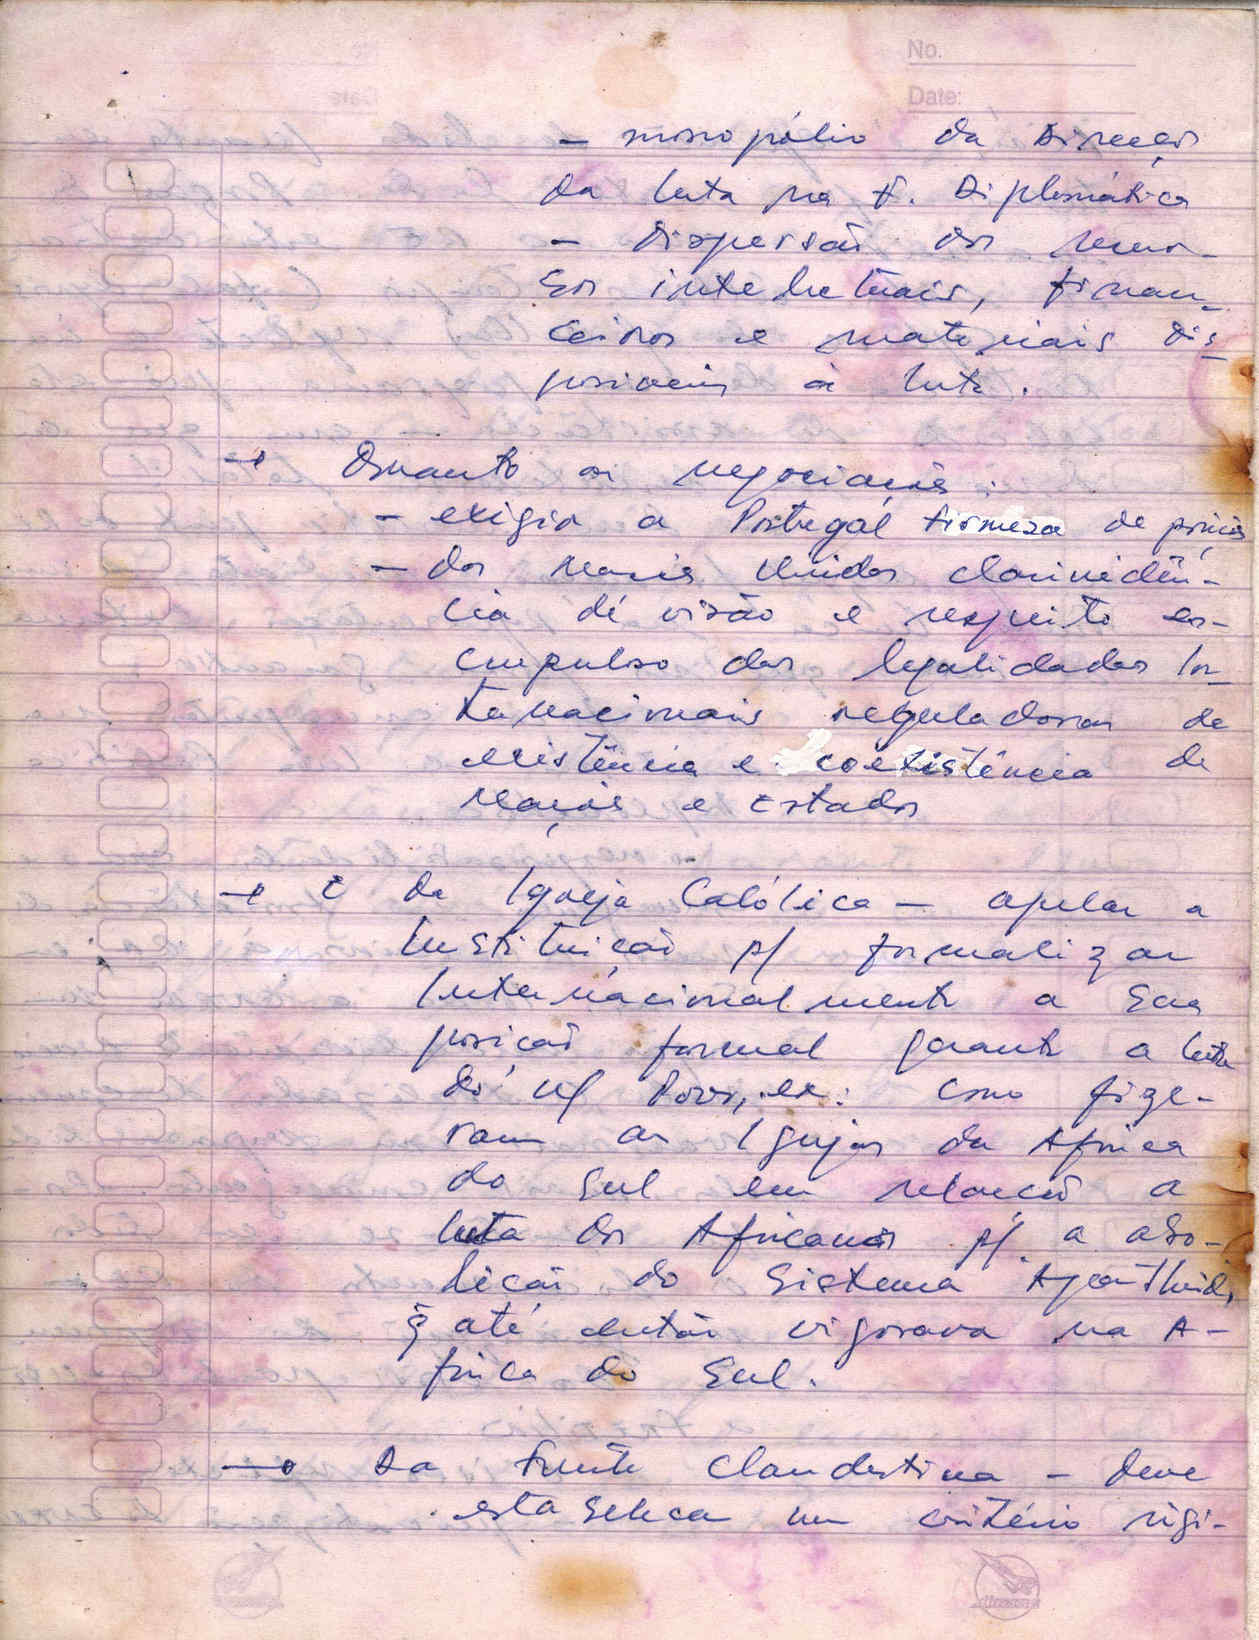 No.
Date:
- monopólio da Direcção
da luta na F. Diplomática
- Dispersão dos recur-
sos intelectuais, finan-
ceiros e materiais dis-
poniveis à luta.
→ Quanto as negociações:
- exigir a Portugal firmeza de
- das Nações Unidas clarividên-
cia de visão e respeito es-
crupuloso das legalidades In-
ternacionais reguladoras de
existência e coexistência de
Nações e Estados
→ E da Igreja Católica - apelar a
Instituição p/ formalizar
Internacionalmente a sua
posição formal perante a luta
do n/ Povo, ex: como fize-
ram as Igrejas da Africa
do Sul em relação a
luta dos Africanos p/ a abo-
lição do Sistema Apartheid,
q̃ até então vigorava na A-
frica do Sul.
→ Da Frente Clandestina - deve
estabelecer um critério rigi-